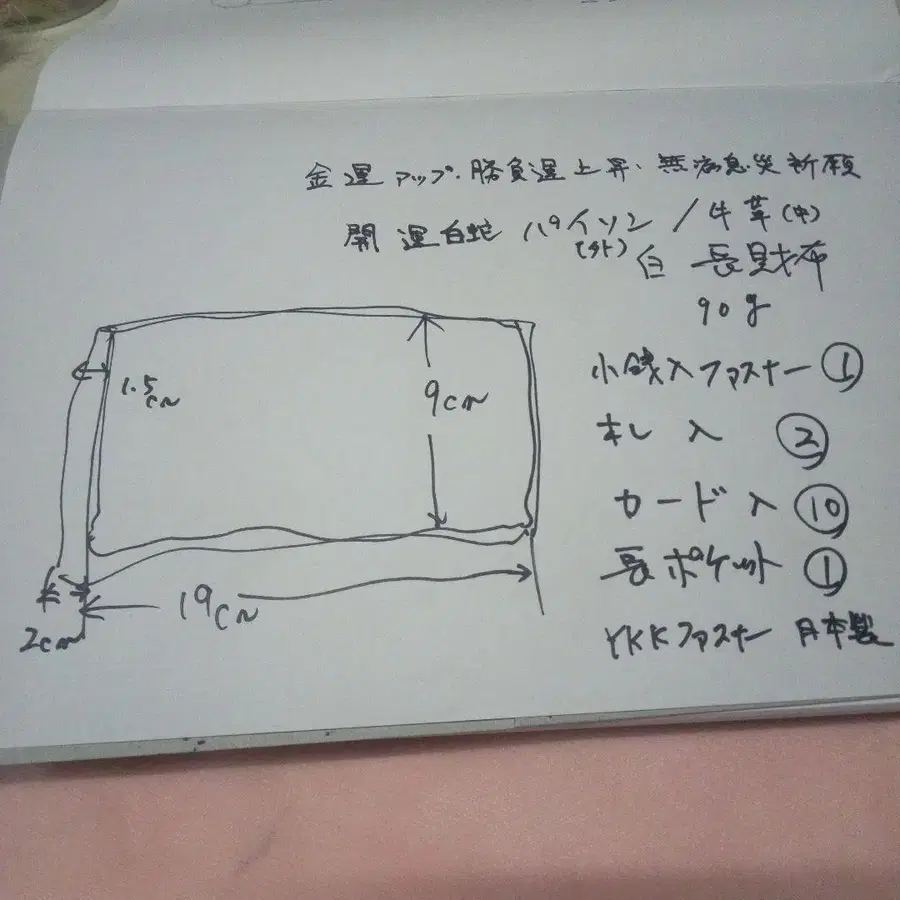 金運アップ・勝負運上昇・無病息災祈願
開運白蛇 パイソン／牛革(中)
(外) 白 長財布
90g
小銭入ファスナー ①
札入 ②
カード入 ⑩
長ポケット ①
YKKファスナー 日本製
1.5cm
9cm
19cm
2cm